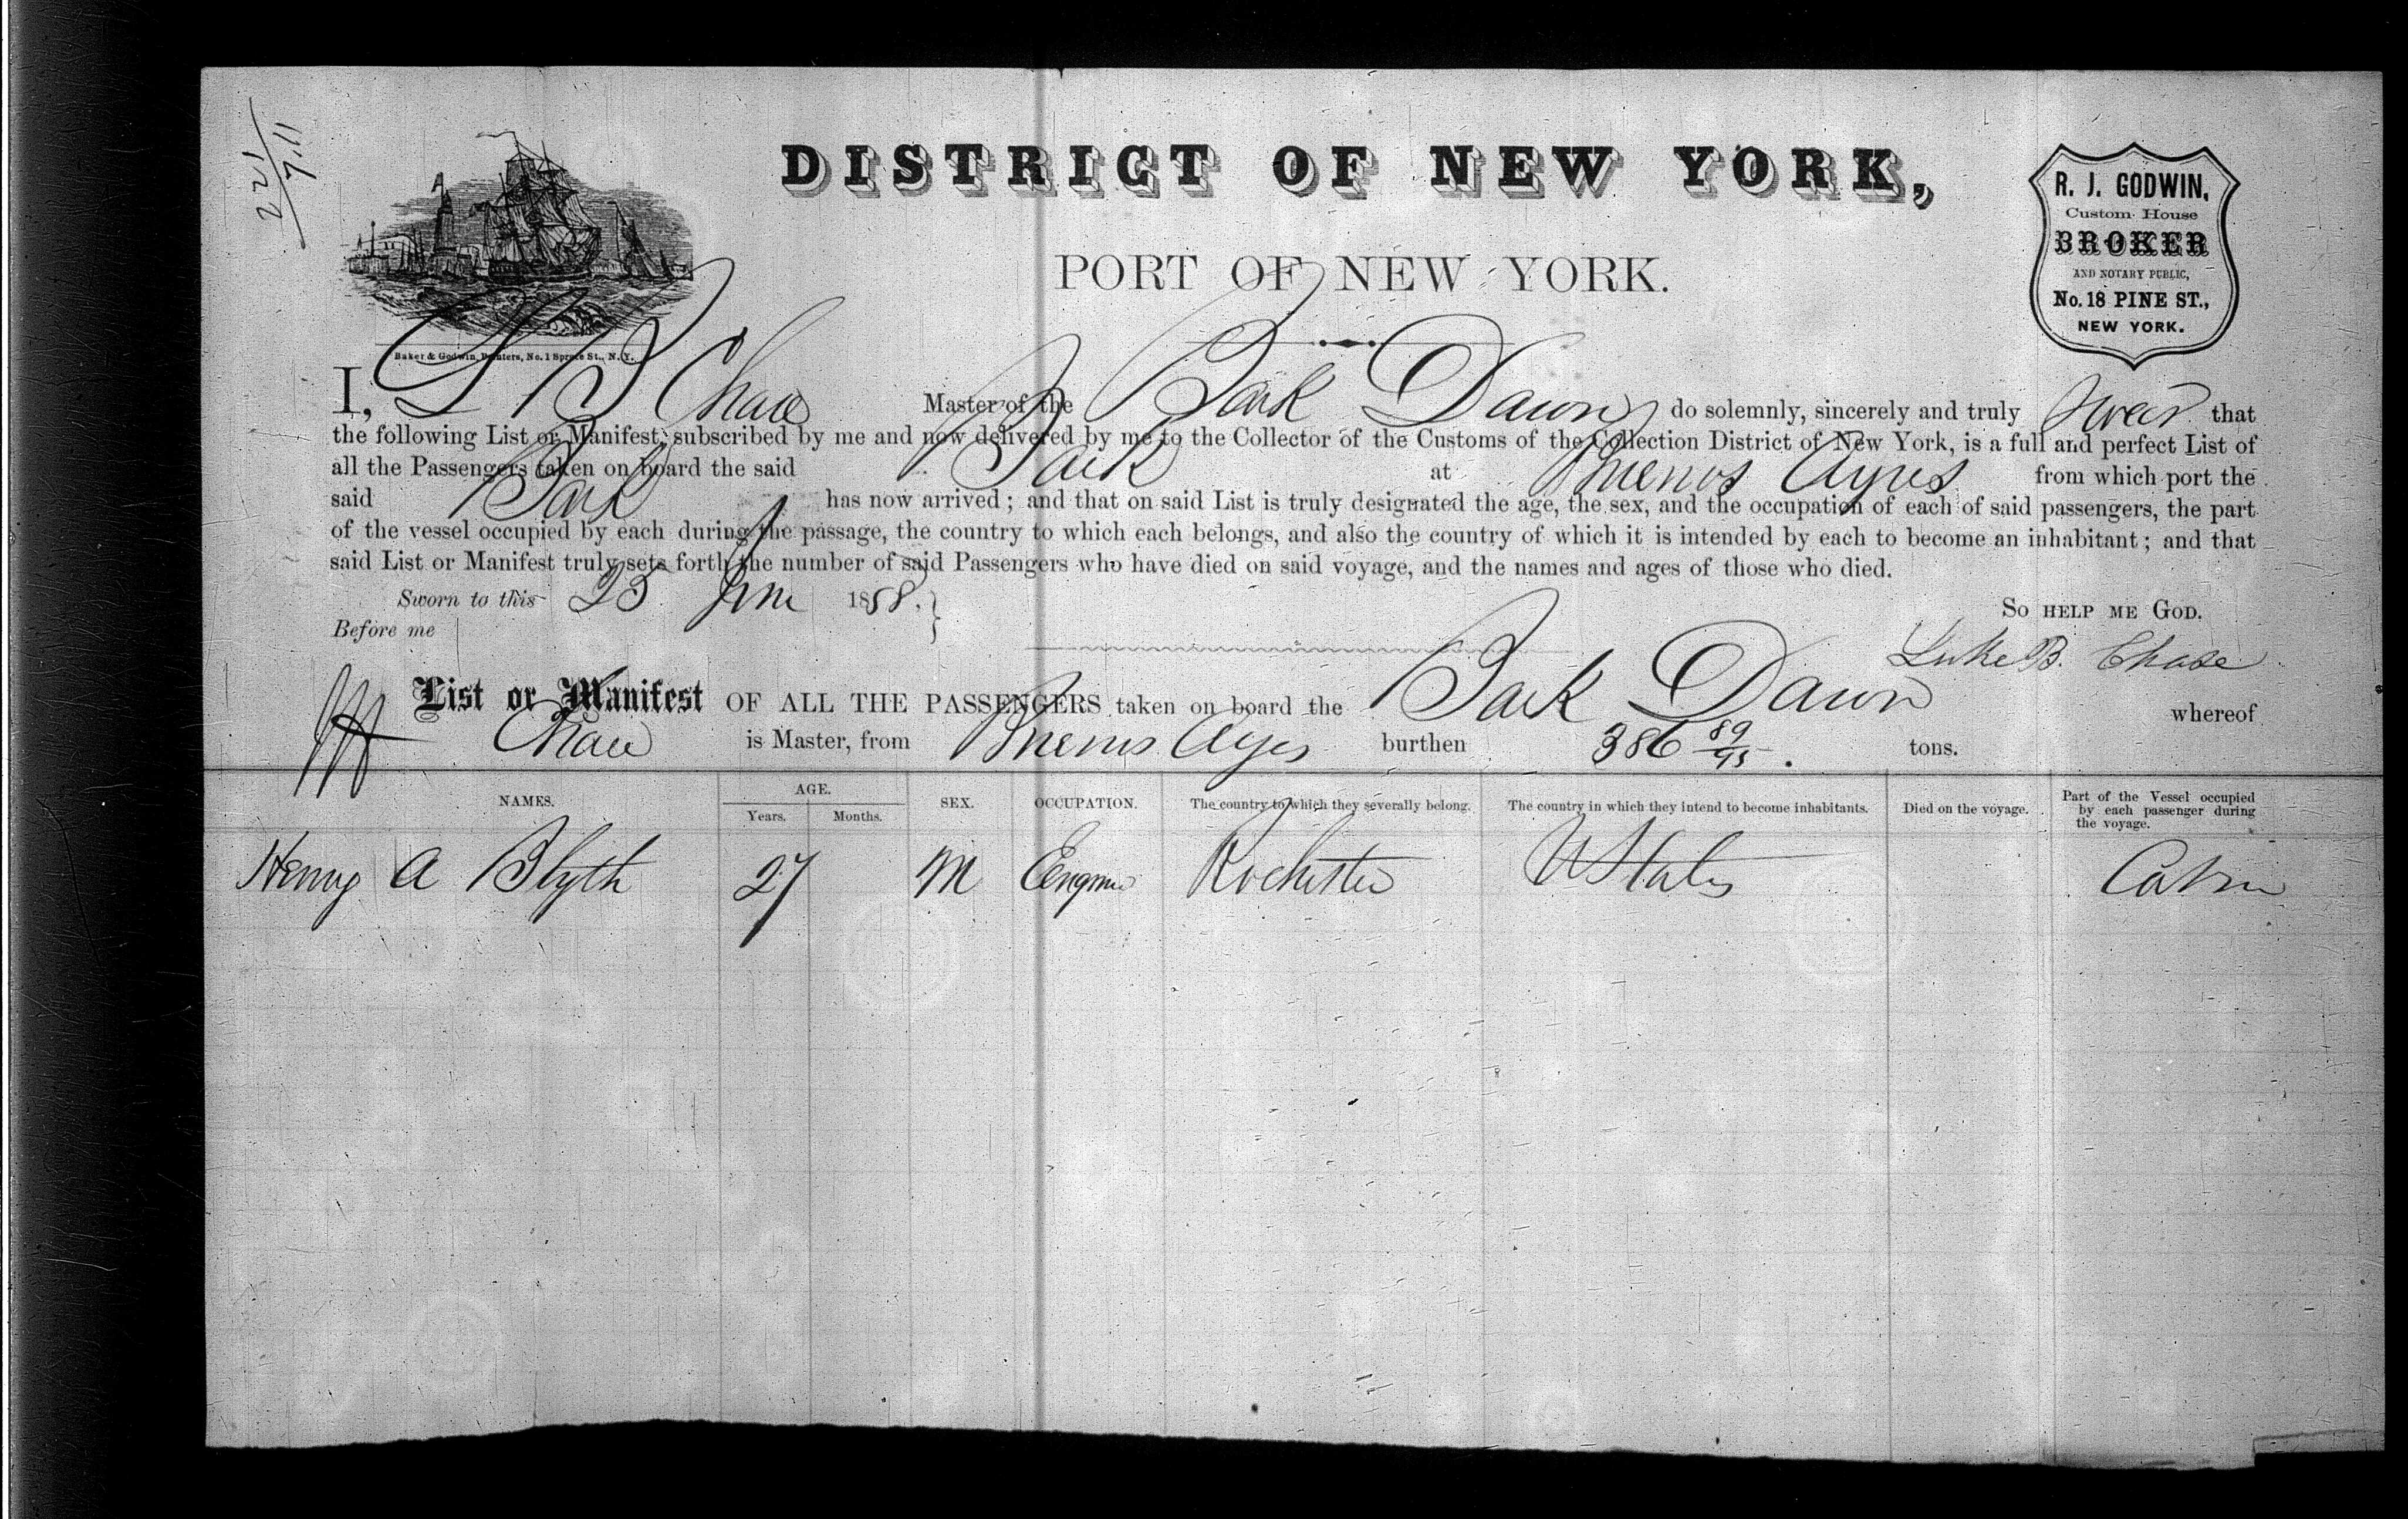 221
711
DISTRICT OF NEW YORK,
PORT OF NEW YORK.
R. J. GODWIN,
Custom House
BROKER
AND NOTARY PUBLIC,
No. 18 PINE ST.,
NEW YORK.
Baker & Godwin, Printers, No. 1 Spruce St., N. Y.
I, L B Chase Master of the Bark Dawn do solemnly, sincerely and truly swear that
the following List or Manifest, subscribed by me and now delivered by me to the Collector of the Customs of the Collection District of New York, is a full and perfect List of
all the Passengers taken on board the said Bark at Buenos Ayres from which port the
said Bark has now arrived; and that on said List is truly designated the age, the sex, and the occupation of each of said passengers, the part
of the vessel occupied by each during the passage, the country to which each belongs, and also the country of which it is intended by each to become an inhabitant; and that
said List or Manifest truly sets forth the number of said Passengers who have died on said voyage, and the names and ages of those who died.
Sworn to this 23 June 1858.
So HELP ME GOD.
Before me
Luke B. Chase
List or Manifest OF ALL THE PASSENGERS taken on board the Bark Dawn whereof
Chase is Master, from Buenos Ayres burthen 386 89/95 tons.
NAMES. AGE. SEX. OCCUPATION. The country to which they severally belong. The country in which they intend to become inhabitants. Died on the voyage. Part of the Vessel occupied by each passenger during the voyage.
Years. Months.
Henry A Blyth 27 M Engineer Rochester U States Cabin